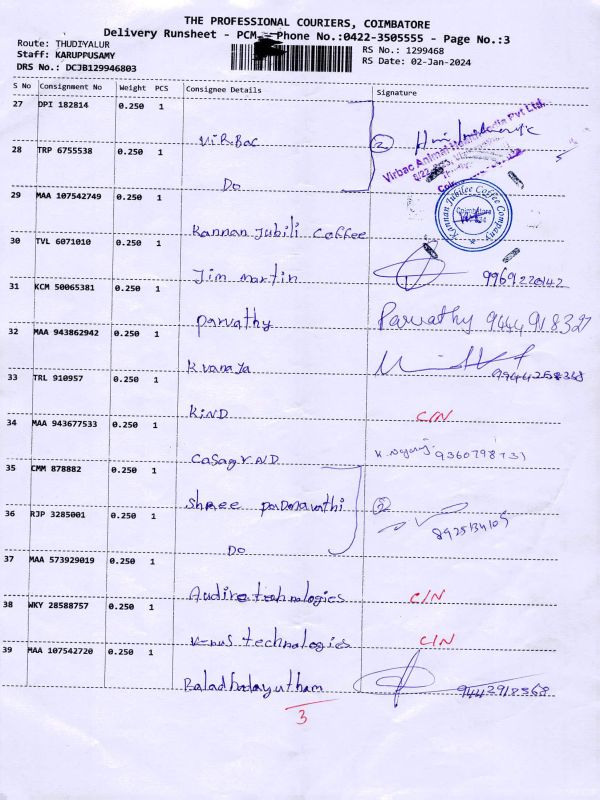 THE PROFESSIONAL COURIERS, COIMBATORE
Delivery Runsheet - PCM - Phone No.:0422-3505555 - Page No.:3
Route: THUDIYALUR RS No.: 1299468
Staff: KARUPPUSAMY RS Date: 02-Jan-2024
DRS No.: DCJB129946803
S No Consignment No Weight PCS Consignee Details Signature
27 DPI 182814 0.250 1
ViRBac 2
Virbac Animal Health India Pvt Ltd.
28 TRP 6755538 0.250 1
Do
29 MAA 107542749 0.250 1
Kannan Jubili Coffee
Kannan Jubilee Coffee Company
Coimbatore
30 TVL 6071010 0.250 1
Jim martin 9969220142
31 KCM 50065381 0.250 1
parvathy Parvathy 9444918327
32 MAA 943862942 0.250 1
33 TRL 910957 0.250 1
KiND C/N
34 MAA 943677533 0.250 1
CasagRAND
35 CMM 878882 0.250 1
Shree padmavathi 2
36 RJP 3285001 0.250 1
Do
37 MAA 573929019 0.250 1
technologies C/N
38 WKY 28588757 0.250 1
technologies C/N
39 MAA 107542720 0.250 1
3